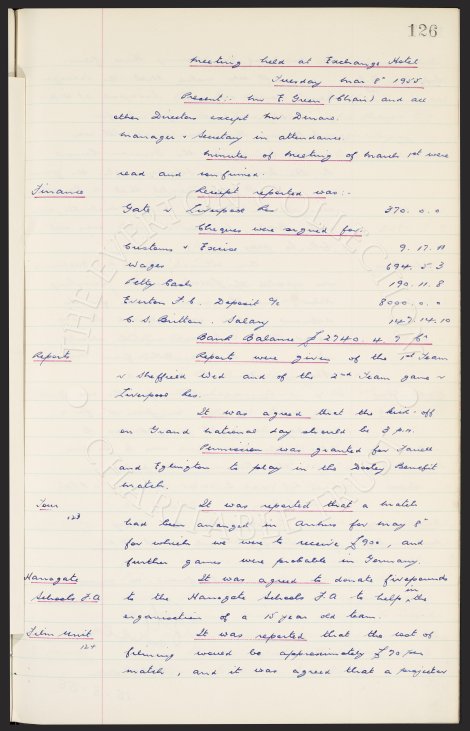 126
Meeting held at Exchange Hotel
Tuesday Mar 8th 1955.
Present:- Mr E. Green (Chair) and all
other Directors except Mr Dinaro.
Manager & Secretary in attendance.
Minutes of meeting of March 1st were
read and confirmed.
Finance
Receipt reported was:-
Gate v. Liverpool Res. 370. 0. 0
Cheques were signed for:-
Customs & Excise 9. 17. 11
Wages 694. 5. 3
Petty Cash 190. 11. 8
Everton F.C. Deposit a/c 8000. 0. 0
C. S. Britton. Salary 147. 14. 10
Bank Balance £2740. 4. 7
Reports
Reports were given of the 1st Team
v Sheffield Wed and of the 2nd Team game v
Liverpool Res.
It was agreed that the kick-off
on Grand National day should be 3 p.m.
Permission was granted for Farrell
and Eglington to play in the Benefit
match.
Tour
123
It was reported that a match
had been arranged in for May 8th
for which we were to receive £900, and
further games were probable in Germany.
Harrogate
Schools F.A
It was agreed to donate five pounds
to the Harrogate Schools F.A to help in the
organisation of a 15 year old team.
Film Unit
124
It was reported that the cost of
filming would be approximately £70 per
match, and it was agreed that a projector
THE EVERTON COLLECTION
CHARITABLE TRUST